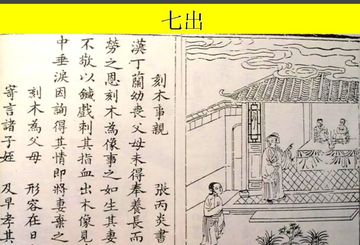 七出
刻木事親 張丙炎書
漢丁蘭幼喪父母未得奉養長而
勞之恩刻木為像事之如生其妻
不敬以鍼戲刺其指血出木像見
中垂淚因詢得其情即將妻棄之
刻木為父母 形容在日
寄言諸子姪 及早孝其